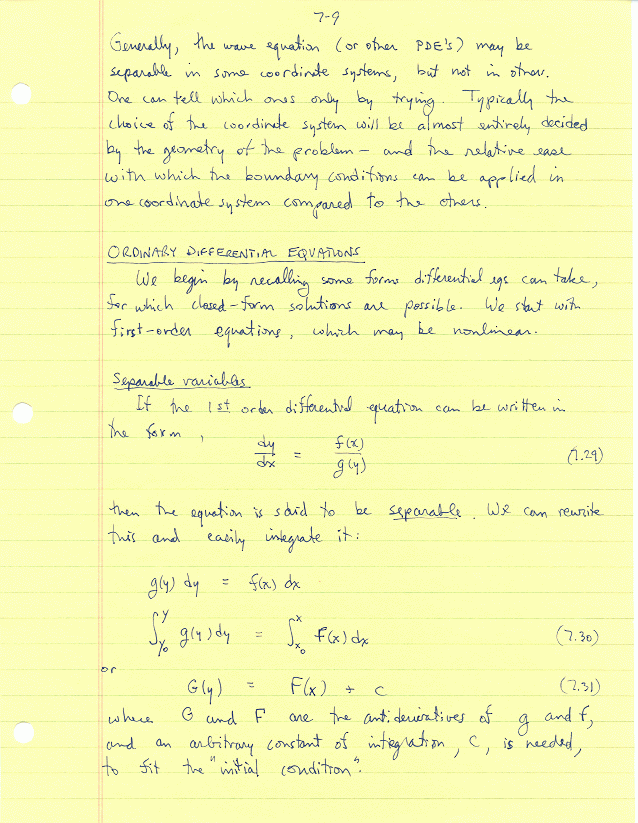 7-9
Generally, the wave equation (or other PDE's) may be
separable in some coordinate systems, but not in others.
One can tell which ones only by trying. Typically the
choice of the coordinate system will be almost entirely decided
by the geometry of the problem - and the relative ease
with which the boundary conditions can be applied in
one coordinate system compared to the others.
ORDINARY DIFFERENTIAL EQUATIONS
We begin by recalling some forms differential eqs can take,
for which closed-form solutions are possible. We start with
first-order equations, which may be nonlinear.
Separable variables
If the 1st order differential equation can be written in
the form,
dy/dx = f(x)/g(y) (7.29)
then the equation is said to be separable. We can rewrite
this and easily integrate it:
g(y) dy = f(x) dx
∫_{y₀}^{y} g(y) dy = ∫_{x₀}^{x} f(x) dx (7.30)
or
G(y) = F(x) + c (7.31)
where G and F are the antiderivatives of g and f,
and an arbitrary constant of integration, C, is needed,
to fit the "initial condition".